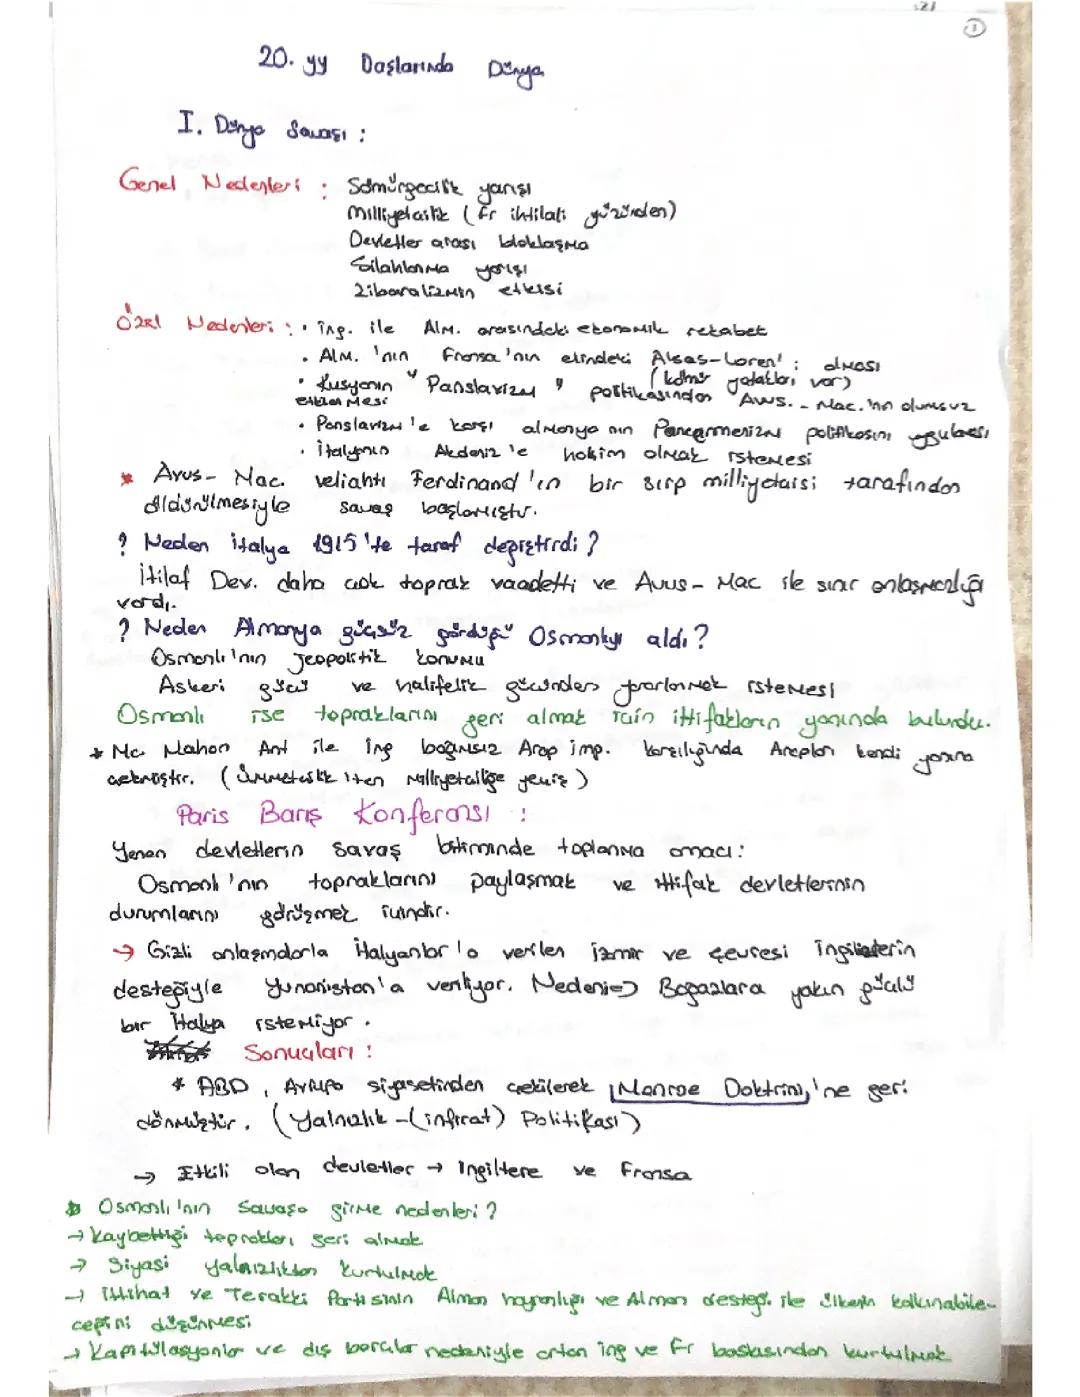 ①
20. yy Başlarında Dünya
I. Dünya Savaşı :
Genel Nedenleri : Sömürgecilik yarışı
Milliyetcilik (Fr ihtilali yüzünden)
Devletler arası bloklaşma
Silahlanma yarışı
Liberalizmin etkisi
Özel Nedenleri : • İng. ile Alm. arasındaki ekonomik rekabet
• Alm. 'nın Fransa'nın elindeki Alsas-Loren'i alması
(kömür yatakları var)
• Rusyanın "Panslavizm" politikasından Avus. - Mac.'nın olumsuz
etkilenmesi
• Panslavizm'e karşı almanya nın Pangermenizm politikasını uygulaması
• İtalyanın Akdeniz'e hakim olmak istemesi
* Avus- Mac. veliahtı Ferdinand'ın bir sırp milliyetcisi tarafından
öldürülmesiyle savaş başlamıştır.
? Neden italya 1915'te taraf değiştirdi ?
İtilaf Dev. daha cok toprak vaadetti ve Avus- Mac ile sınır anlaşmazlığı
vardı.
? Neden Almanya güçsüz gördüğü Osmanlıyı aldı ?
Osmanlı'nın jeopolitik konumu
Askeri gücü ve halifelik gücünden yararlanmak istemesi
Osmanlı ise topraklarını geri almak icin ittifakların yanında bulundu.
* Mc Mahon Ant ile ing bağımsız Arap imp. karşılığında Arapları kendi yanına
cekmiştir. (Ümmetcilikten Milliyetciliğe geçiş)
Paris Barış Konferansı :
Yenen devletlerin savaş bitiminde toplanma amacı:
Osmanlı'nın topraklarını paylaşmak ve ittifak devletlerinin
durumlarını görüşmek icindir.
→ Gizli anlaşmalarla italyanlar'a verilen izmir ve çevresi ingilizlerin
desteğiyle Yunanistan'a veriliyor. Nedeni=> Boğazlara yakın güçlü
bir italya istemiyor.
Sonuçları :
* ABD, Avrupa siyasetinden cekilerek Monroe Doktrini,'ne geri
dönmüştür. (Yalnızlık -(infirat) Politikası)
→ Etkili olan devletler → İngiltere ve Fransa
Osmanlı'nın Savaşa girme nedenleri ?
→ Kaybettiği toprakları geri almak
→ Siyasi yalnızlıktan kurtulmak
→ İttihat ve Terakki Partisinin Alman hayranlığı ve Alman desteği ile ülkenin kalkınabile-
ceğini düşünmesi
→ Kapitülasyonlar ve dış borçlar nedeniyle artan ing ve Fr baskısından kurtulmak